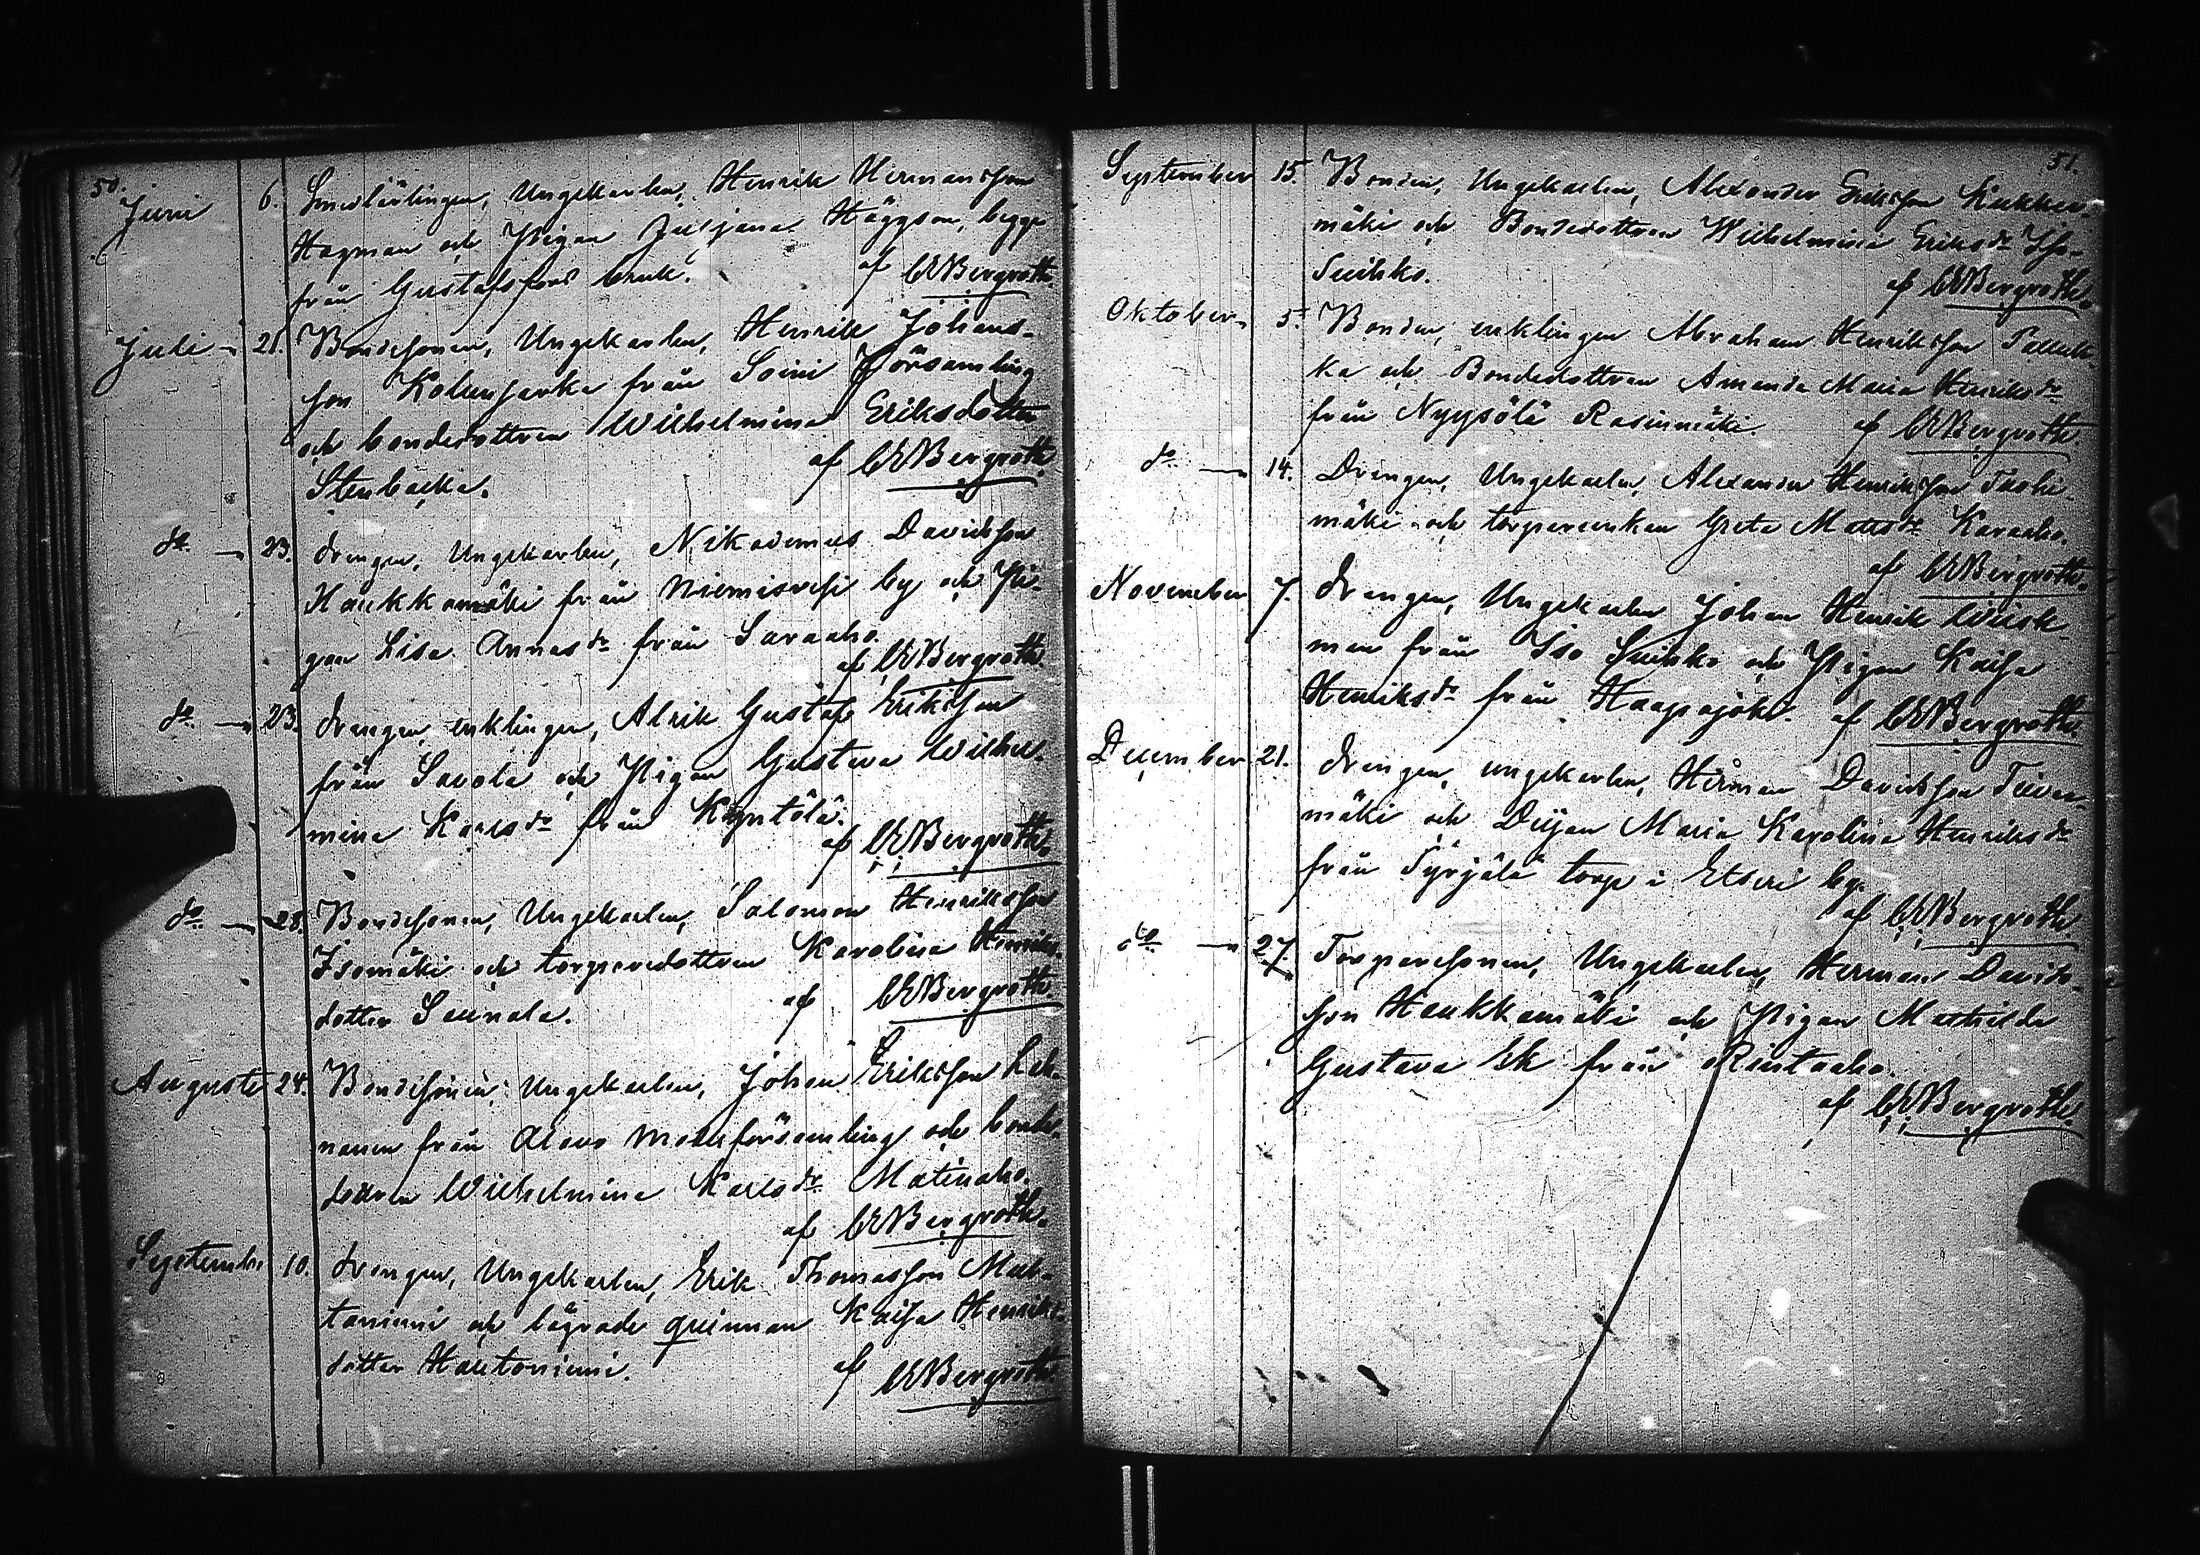 50.
Juni 6. Smedlärlingen, Ungekarlen, Henrik Hermansson
Hagman och Pigan Juljana Häggson, begge
från Gustafsfors bruk. af CEBergroth.
Juli 21. Bondesonen, Ungekarlen, Henrik Johans-
son från Soini Församling
och bondedottren Wilhelmina Eriksdotter
Stenbacka. af CEBergroth.
do 23. drengen, Ungekarlen, Nikodemus Davidsson
Haukkamäki från Niemisvesi by och Pi-
gan Lisa Annasdr från Saraaho.
af CEBergroth.
do 23. drengen, enklingen, Alrik Gustaf Eriksson
från Savola och Pigan Gustava Wilhel-
mina Karlsdr från Käyntölä.
af CEBergroth.
do 28. Bondesonen, Ungekarlen, Salomon Henriksson
Isomäki och torparedottren Karolina Henriks-
dotter Saunala. af CEBergroth
Augusti 24. Bondesonen, Ungekarlen, Johan Eriksson Leh-
nanen från Alavo Moderförsamling och bonde-
dottren Wilhelmina Karlsdr Matinaho.
af CEBergroth.
September 10. drengen, Ungekarlen, Erik Thomasson Mul-
toniemi och lägrade qvinnan Kaisa Henriks-
dotter Hautoniemi. af CEBergroth.
51.
September 15. Bonden, Ungekarlen, Alexander Eriksson Kukko-
mäki och Bondedottren Wilhelmina Eriksdr Iso-
Suihko. af CEBergroth.
Oktober 5. Bonden, enklingen Abraham Henriksson
ka och Bondedottren Amanda Maria Henriksdr
från Nyysölä Rasinmäki. af CEBergroth
do 14. Drengen, Ungekarlen, Alexander Henriksson
mäki och torpareenkan Greta Matsdr Karaaho.
af CEBergroth.
November 7. drengen, Ungekarlen Johan Henrik Wiik-
man från Iso Suihko och Pigan Kaisa
Henriksdr från Haapajoki. af CEBergroth.
December 21. drengen, ungekarlen, Herman Davidsson
mäki och Deijan Maria Karolina Henriksdr
från Syrjälä torp i Etseri by.
af CEBergroth
do 27. Torparesonen, Ungekarlen, Herman Davids-
son Haukkamäki och Pigan Mathilda
Gustava Ek från Rintaaho.
af CEBergroth.